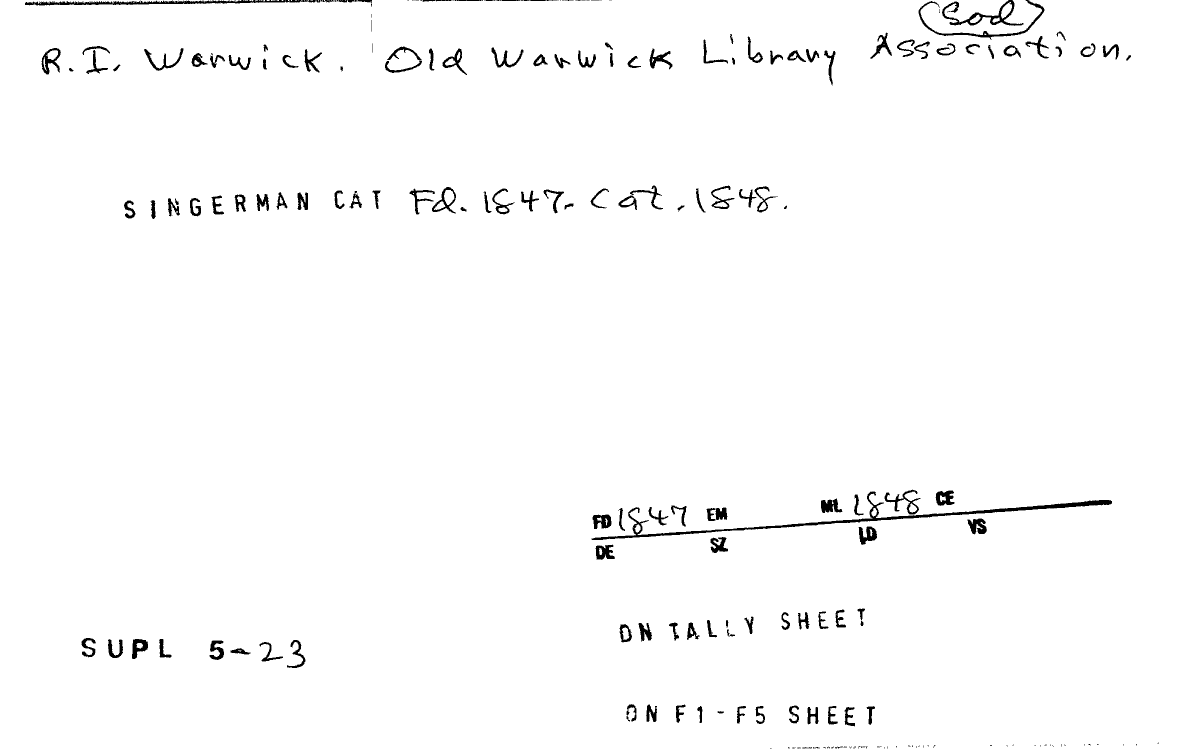 (Sod)
R.I. Warwick. Old Warwick Library Association.
SINGERMAN CAT Fd. 1847. Cat. 1848.
FD 1847 EM ML 1848 CE
DE SZ LD VS
ON TALLY SHEET
SUPL 5-23
ON F1-F5 SHEET